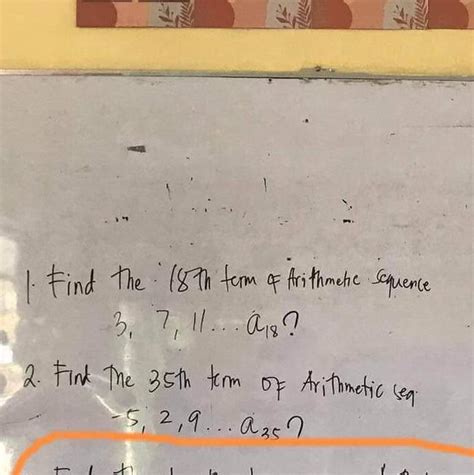 1. Find the 18th term of Arithmetic Sequence
3, 7, 11... a18?
2. Find The 35th term OF Arithmetic seq.
-5, 2, 9... a35?